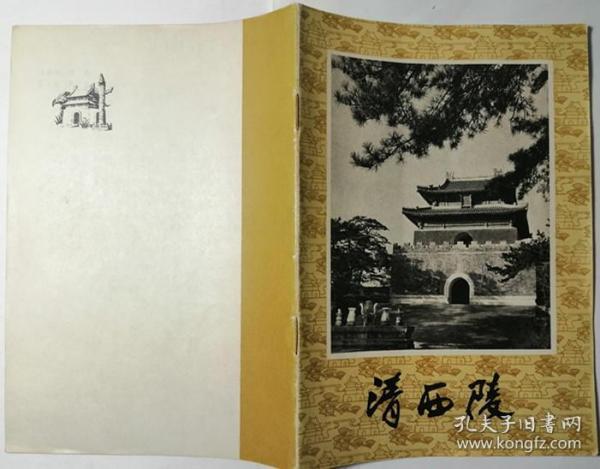 清西陵
孔夫子旧书网
www.kongfz.com